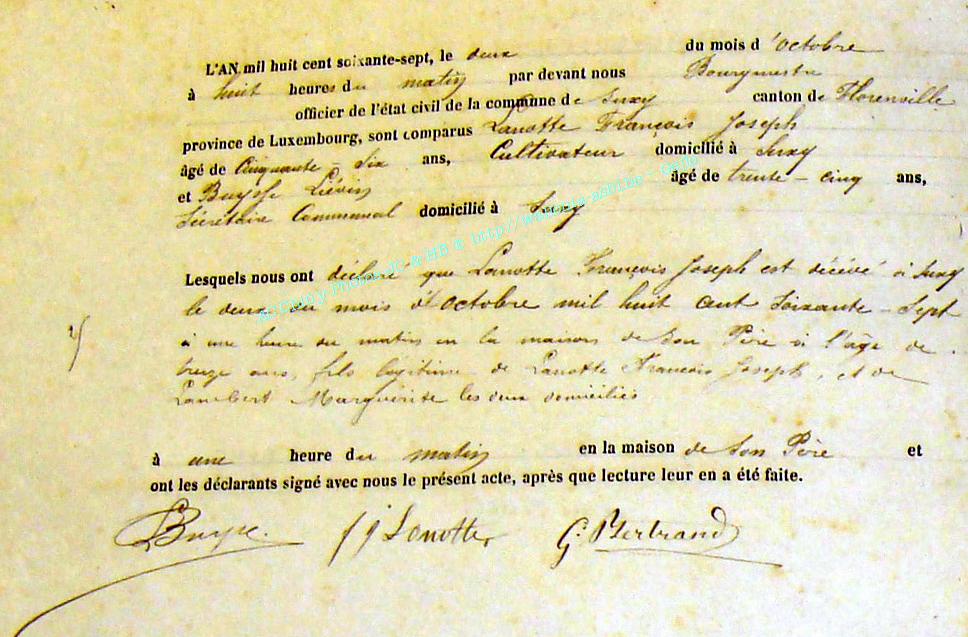 L'AN mil huit cent soixante-sept, le deux du mois d'octobre
à huit heures du matin par devant nous Bourgmestre
officier de l'état civil de la commune de Suxy canton de Florenville
province de Luxembourg, sont comparus Lanotte François Joseph
âgé de Cinquante-six ans, Cultivateur domicilié à Suxy
et Buysse Liévin âgé de trente-cinq ans,
Sécrétaire Communal domicilié à Suxy
Lesquels nous ont déclaré que Lanotte François Joseph est décédé à Suxy
le deux du mois d'Octobre mil huit cent Soixante-Sept
à une heure du matin en la maison de Son Père à l'age de
treize ans, fils légitime de Lanotte François Joseph, et de
Lambert Marguerite les deux domiciliés
à une heure du matin en la maison de Son Père et
ont les déclarants signé avec nous le présent acte, après que lecture leur en a été faite.
Buysse f j Lanotte G. Bertrand